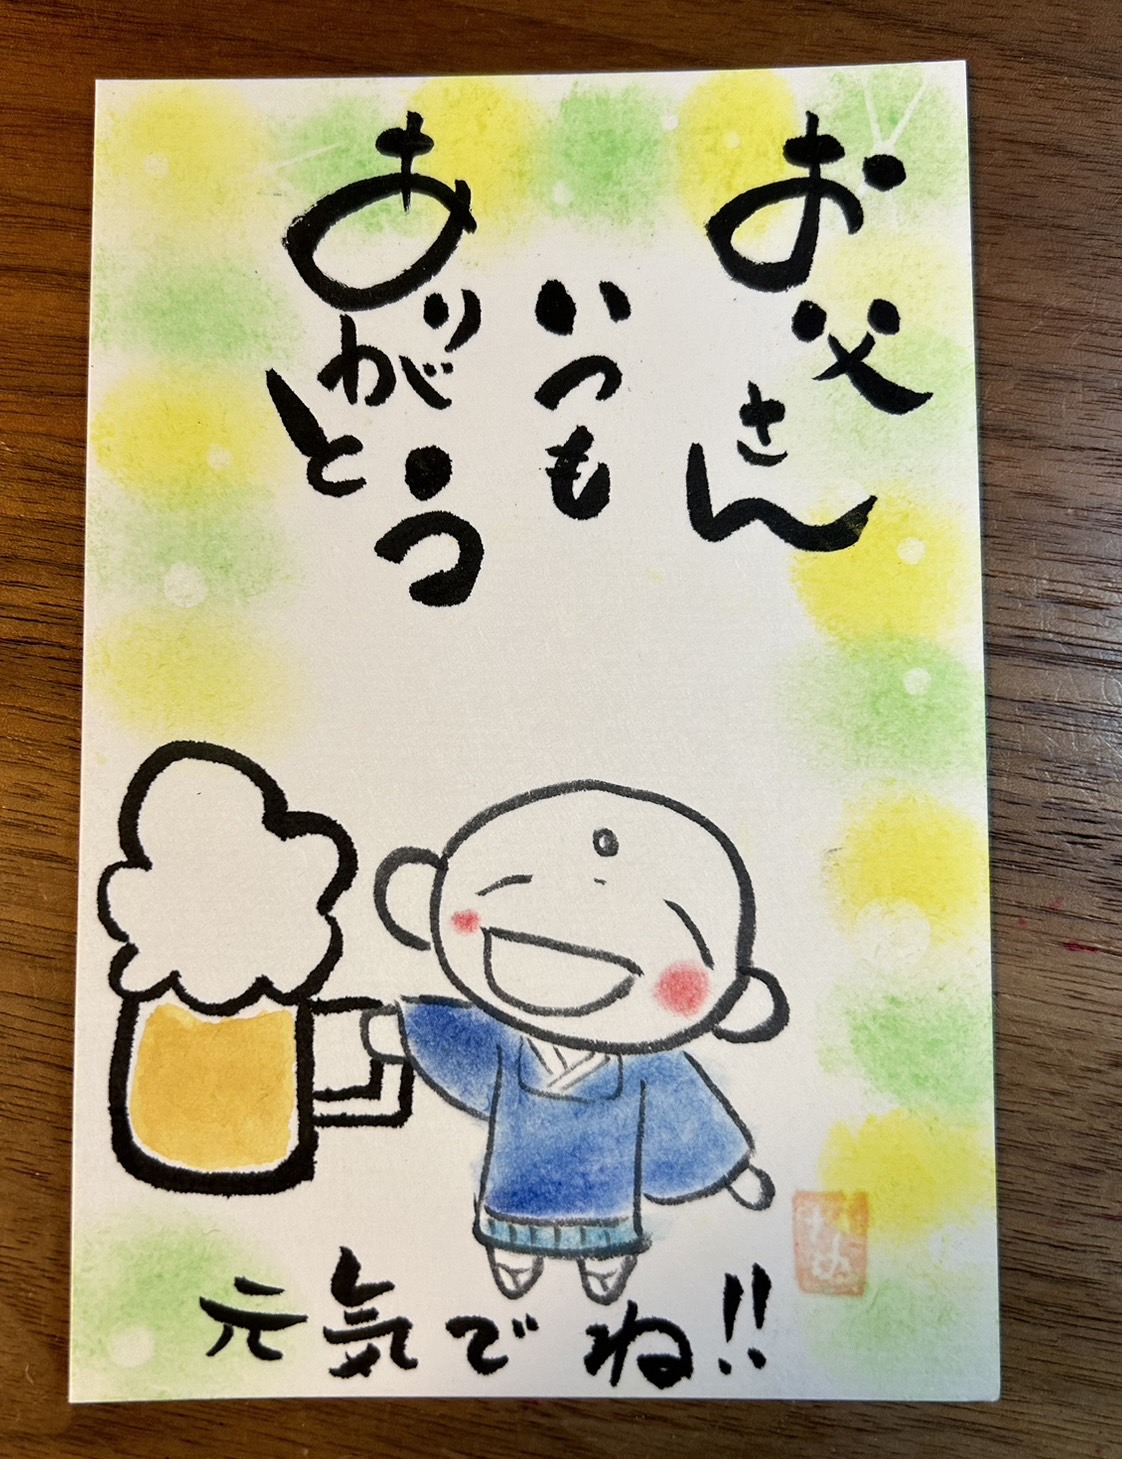 お父さん
いつも
ありがとう
元気でね!!